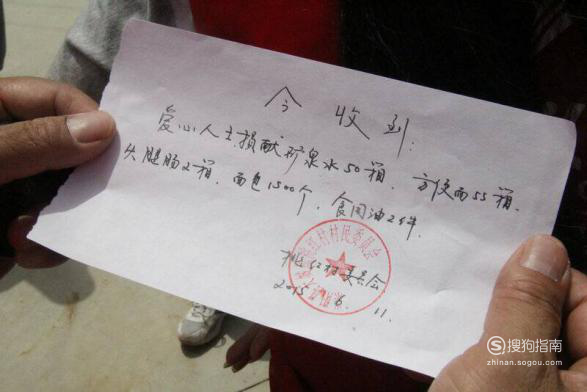 今收到:
爱心人士捐献矿泉水50箱、方便面55箱、
火腿肠2箱、面包1500个、食用油2件.
桃红村委会
2015. 6. 11.
红村村民委员会
搜狗指南
zhinan.sogou.com